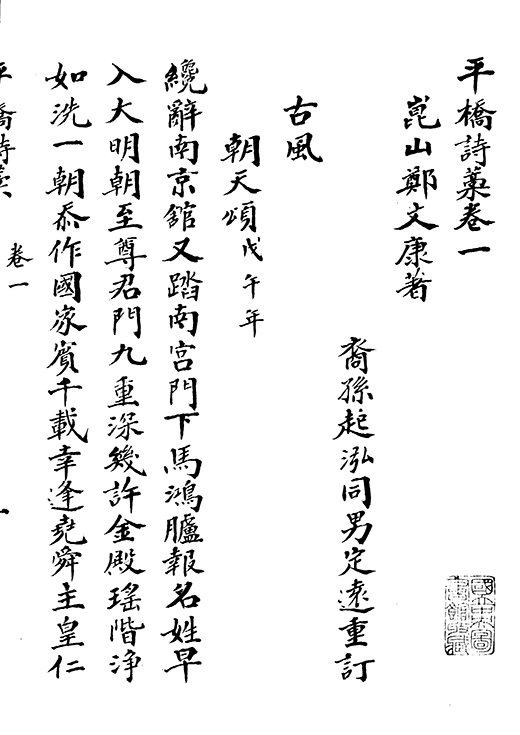 平橋詩藁卷一
崑山鄭文康著
裔孫起泓同男定遠重訂
古風
朝天頌戊午年
纔辭南京館又踏南宮門下馬鴻臚報名姓早
入大明朝至尊君門九重深幾許金殿瑤階淨
如洗一朝忝作國家賓千載幸逢堯舜主皇仁
平橋詩藁
卷一
一